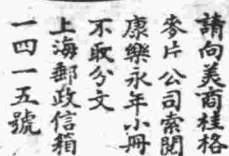 請向美商桂格
麥片公司索閱
康樂永年小冊
不取分文
上海郵政信箱
一四一五號